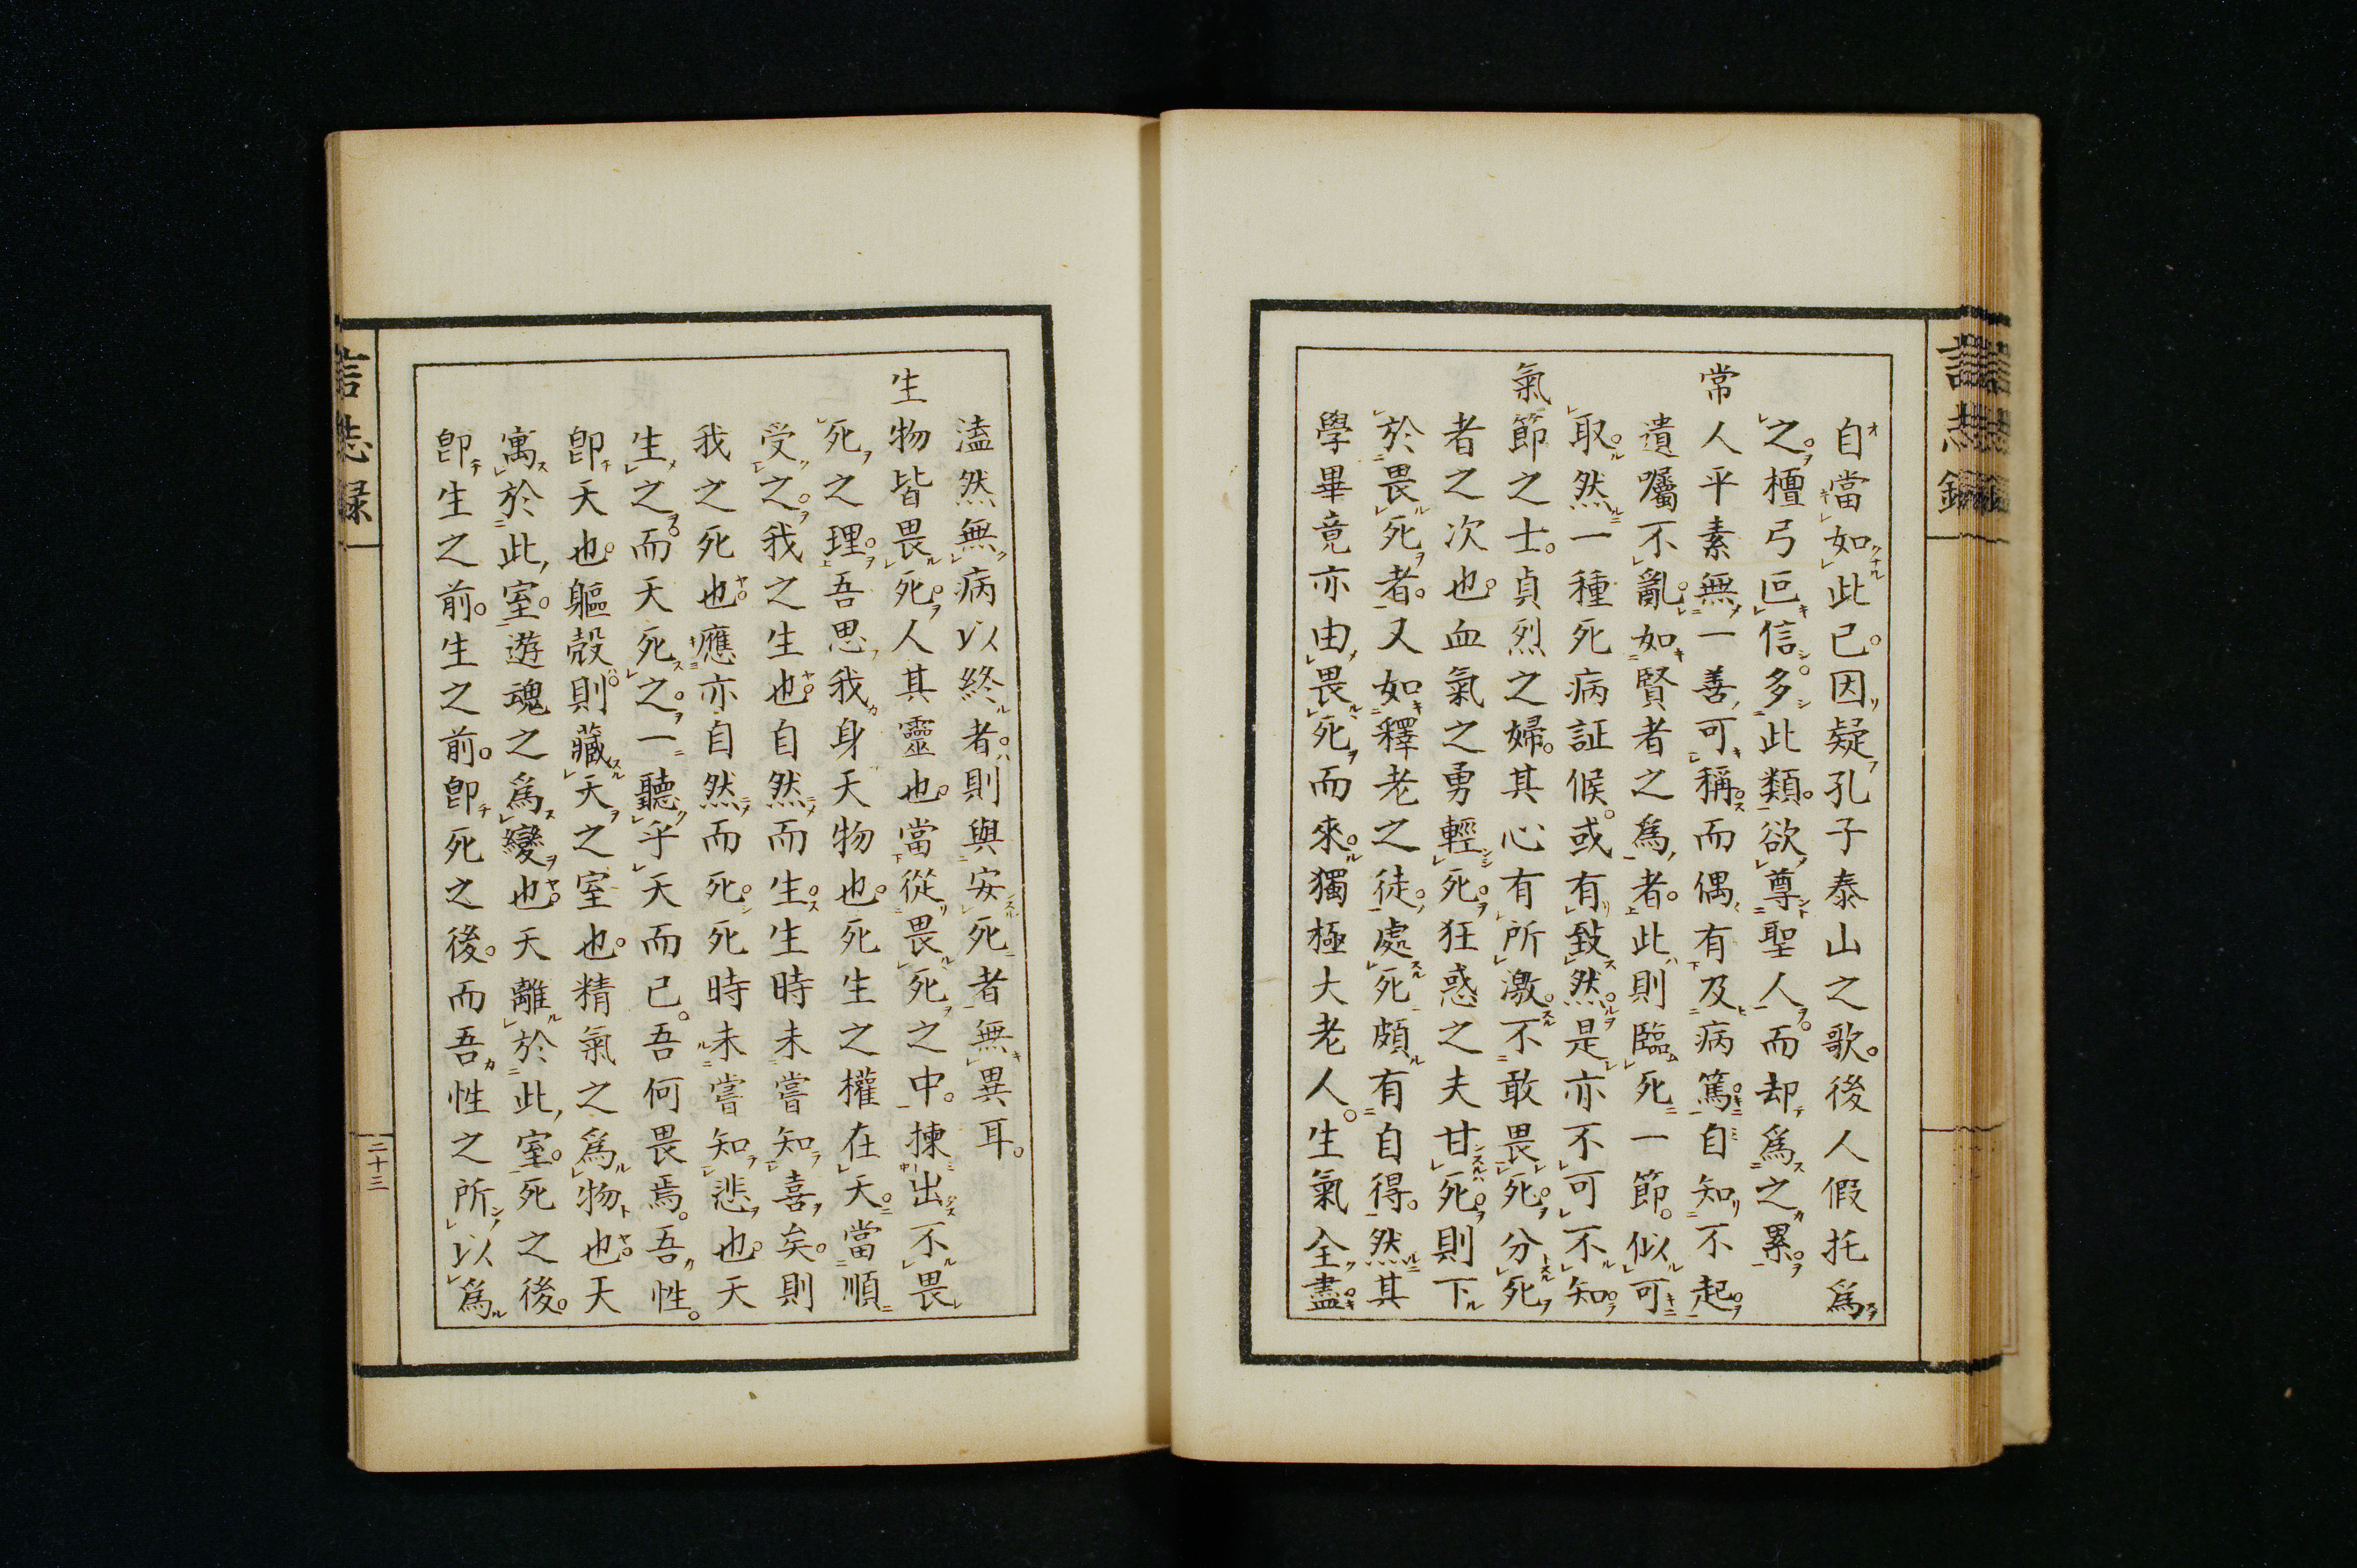 自當如此已因疑孔子泰山之歌後人假托爲
之檀弓叵信多此類欲尊聖人而却爲之累
常人平素無一善可稱而偶有及病篤自知不起
遺囑不亂如賢者之爲者此則臨死一節似可
取然一種死病証候或有致然是亦不可不知
氣節之士貞烈之婦其心有所激不敢畏死分死
者之次也血氣之勇輕死狂惑之夫甘死則下
於畏死者又如釋老之徒處死頗有自得然其
學畢竟亦由畏死而來獨極大老人生氣全盡
溘然無病以終者則與安死者無異耳
生物皆畏死人其靈也當從畏死之中揀出不畏
死之理吾思我身天物也死生之權在天當順
受之我之生也自然而生生時未嘗知喜矣則
我之死也應亦自然而死死時未嘗知悲也天
生之而天死之一聽乎天而已吾何畏焉吾性
卽天也軀殼則藏天之室也精氣之爲物也天
寓於此室遊魂之爲變也天離於此室死之後
卽生之前生之前卽死之後而吾性之所以爲
言志録
二十三